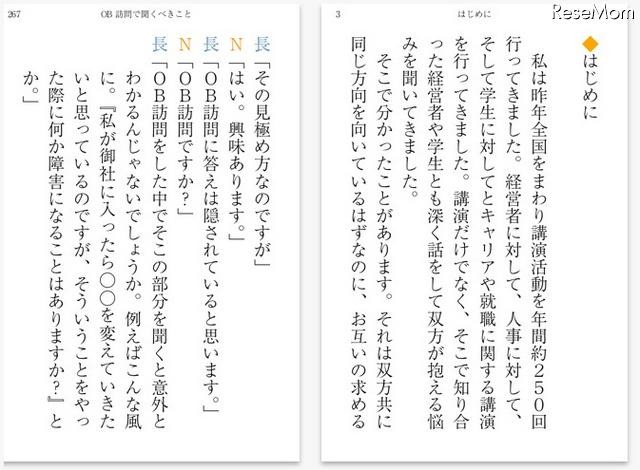 ReseMom
3
はじめに
◆はじめに
私は昨年全国をまわり講演活動を年間約250回
行ってきました。経営者に対して、人事に対して、
そして学生に対してとキャリアや就職に関する講演
を行ってきました。講演だけでなく、そこで知り合
った経営者や学生とも深く話をして双方が抱える悩
みを聞いてきました。
そこで分かったことがあります。それは双方共に
同じ方向を向いているはずなのに、お互いの求める
267
OB訪問で聞くべきこと
長「その見極め方なのですが」
N「はい。興味あります。」
長「OB訪問に答えは隠されていると思います。」
N「OB訪問ですか?」
長「OB訪問をした中でそこの部分を聞くと意外と
わかるんじゃないでしょうか。例えばこんな風
に。『私が御社に入ったら○○を変えていきた
いと思っているのですが、そういうことをやっ
た際に何か障害になることはありますか?』と
か。」